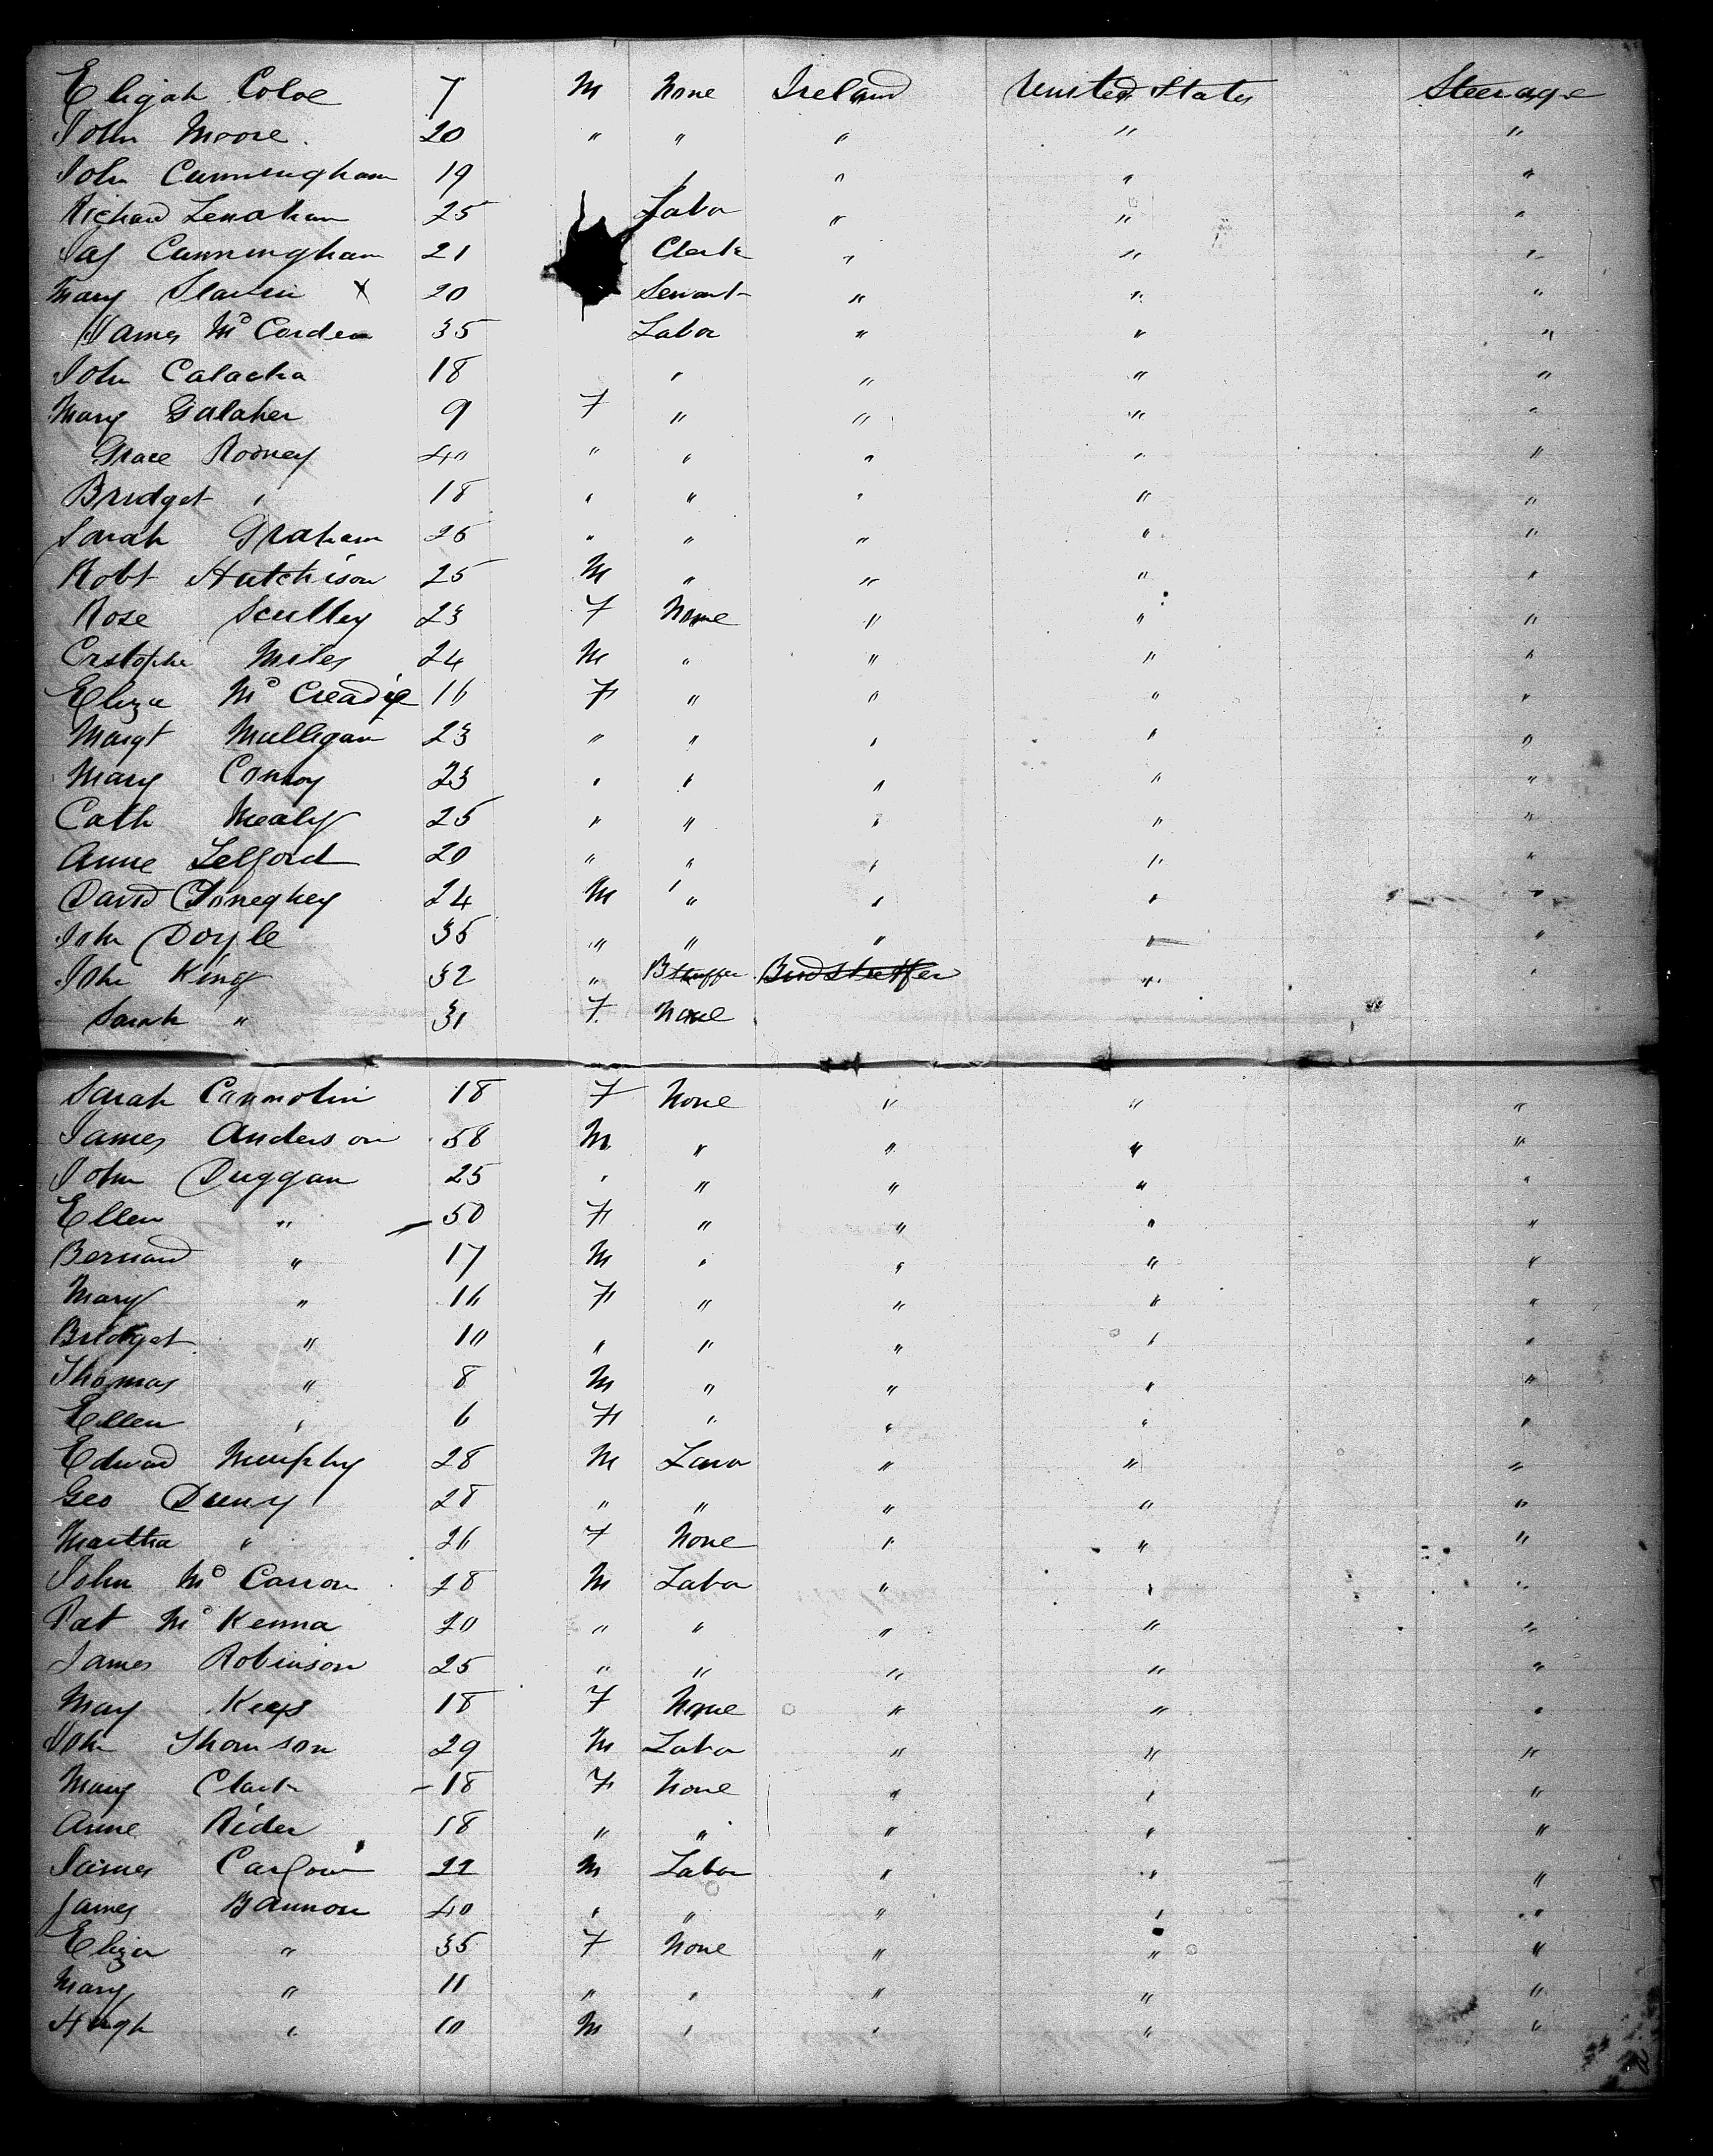 Elijah Coloe 7 M None Ireland United States Steerage
John Moore. 20 " " " " "
John Cunningham 19 " " " "
Richard Lenahan 25 Labor " " "
Jas Cunningham 21 Clerk " " "
Mary Slavin x 20 Servant " " "
James McCorden 35 Labor " " "
John Calacha 18 " " " "
Mary Galaher 9 F " " " "
Grace Rodney 40 " " " " "
Bridget " 18 " " " " "
Sarah Graham 26 " " " " "
Robt Hutchison 25 M " " " "
Rose Sculley 23 F None " " "
Crstophe Miles 24 M " " " "
Eliza McCreadie 16 F " " " "
Margt Mulligan 23 " " " " "
Mary Conroy 23 " " " " "
Cath Nealy 25 " " " " "
Anne Telford 20 " " " " "
David 24 M " " " "
John Doyle 35 " " " " "
John King 32 " BStuffer Birdstuffer " "
Sarah " 31 F None
Sarah 18 F None " " "
James Anderson 58 M " " " "
John Duggan 25 " " " " "
Ellen " 50 F " " " "
Bernard " 17 M " " " "
Mary " 16 F " " " "
Bridget " 10 " " " " "
Thomas " 8 M " " " "
Ellen " 6 F " " " "
Edward Murphy 28 M Labor " " "
Geo Deeny 28 " " " " "
Martha " 26 F None " " "
John McCarron 28 M Labor " " "
Pat McKenna 20 " " " " "
James Robinson 25 " " " " "
May Keeys 18 F None " " "
John Thomson 29 M Labor " " "
Mary Clark 18 F None " " "
Anne Rider 18 " " " " "
James 22 M Labor " " "
James Bannon 40 " " " " "
Eliza " 35 F None " " "
Mary " 11 " " " " "
Hugh " 10 M " " " "